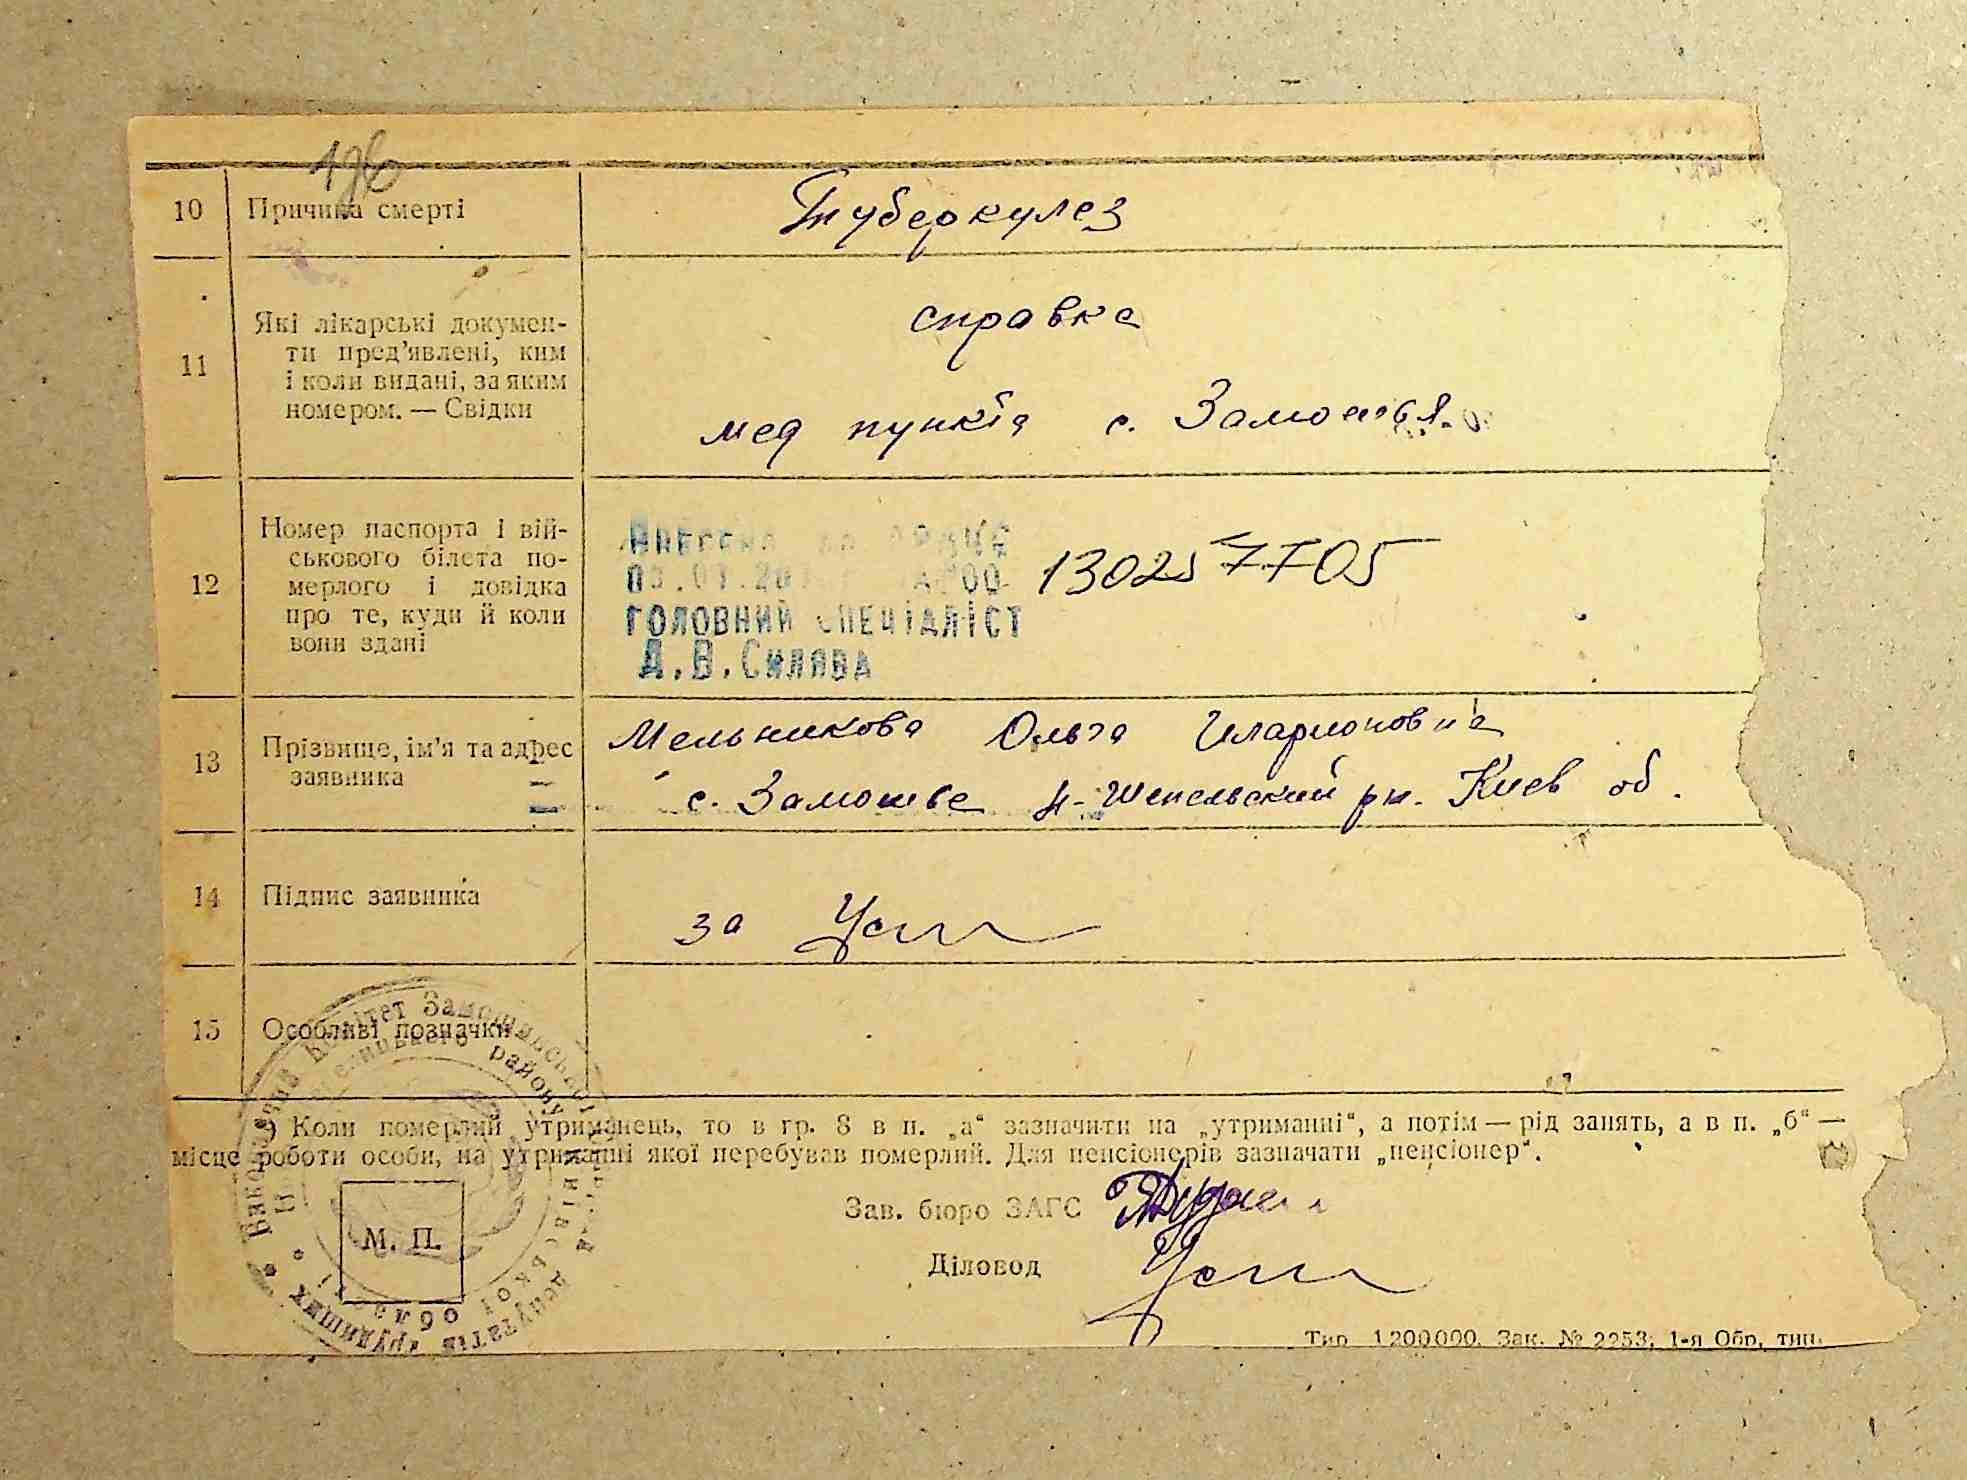 196
10 Причина смерті Туберкулез
11 Які лікарські докумен-
ти пред'явлені, ким
і коли видані, за яким
номером. — Свідки
справка
мед пункта с. Замошья.
12 Номер паспорта і вій-
ськового білета по-
мерлого і довідка
про те, куди й коли
вони здані
ГОЛОВНИЙ СПЕЦІАЛІСТ
Д.В.Силява
13025 7705
13 Прізвище, ім'я та адрес
заявника
Мельникова Ольга Иларионовна
с. Замошье Н-Шепельский рн. Киев об.
14 Підпис заявника за
15 Особливі позначки
Виконавчий Комітет Замошнської депутатів трудящих
району області
) Коли померлий утриманець, то в гр. 8 в п. „а“ зазначити на „утриманні“, а потім — рід занять, а в п. „б“ —
місце роботи особи, на утриманні якої перебував померлий. Для пенсіонерів зазначати „пенсіонер“.
М. П.
Зав. бюро ЗАГС
Діловод
Тир 1200000. Зак. № 2253, 1-я Обр. тип.